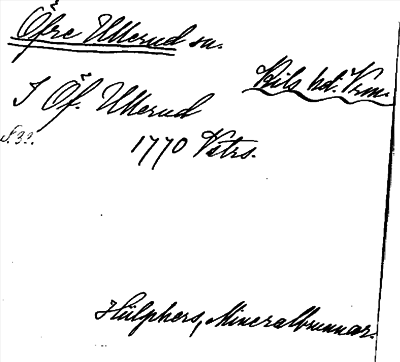 Öfre Ullerud sn.
Kils hd. Vrm.
I Öf. Ullerud
s. 33.
1770 Vstrs.
Hülphers, Mineralbrunnar.